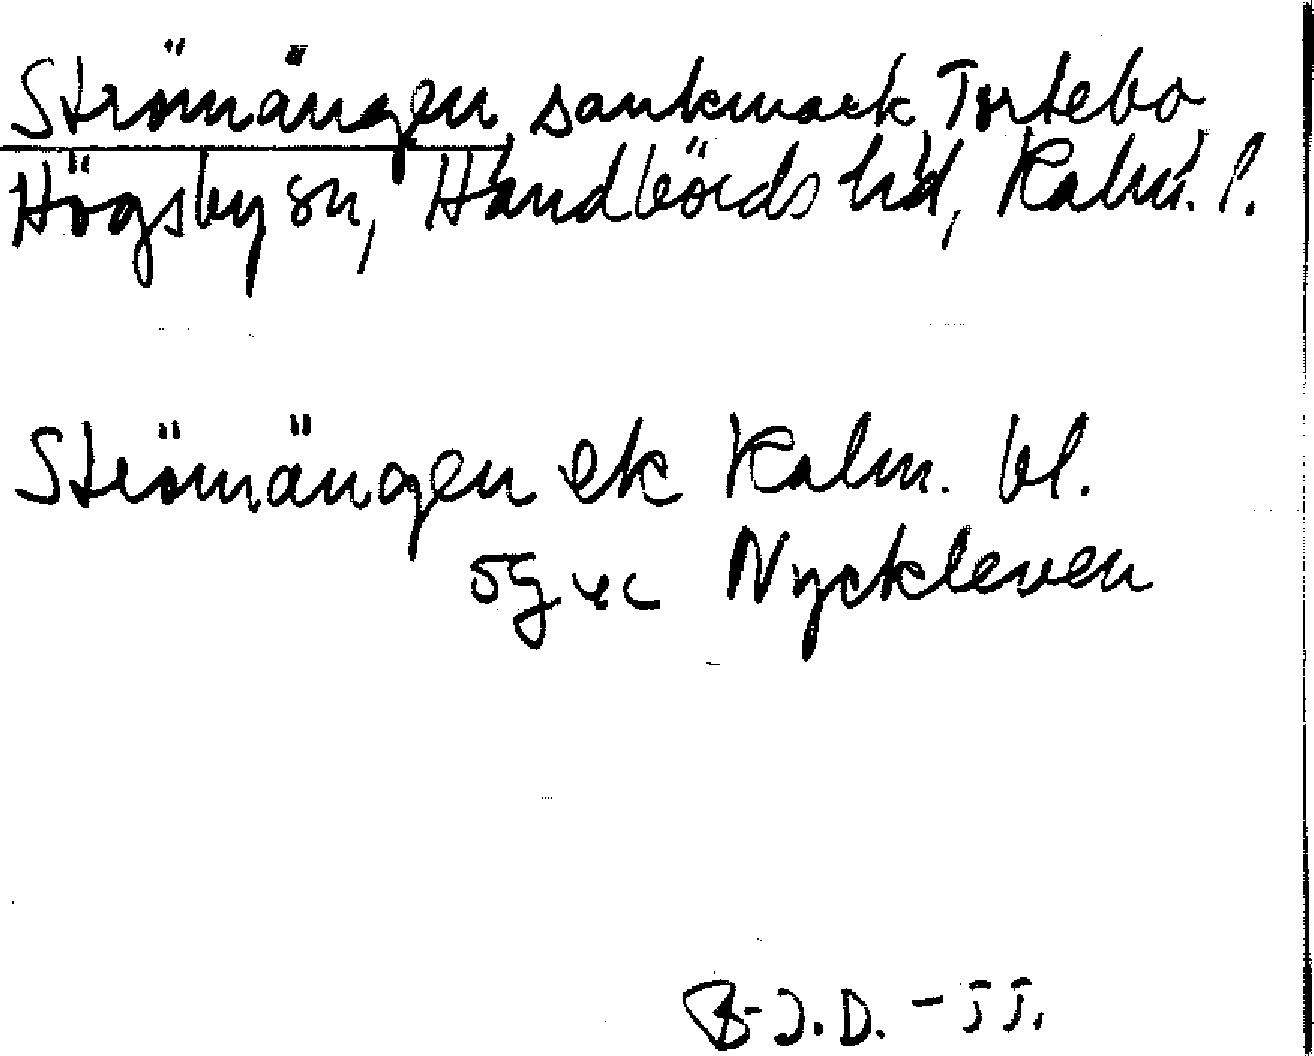 Strömängen, sankmark Tortebo
Högsby sn, Handbörds hd, Kalm. l.
Strömängen ek Kalm. bl.
Nyckleven
B-J.D. - JJ.